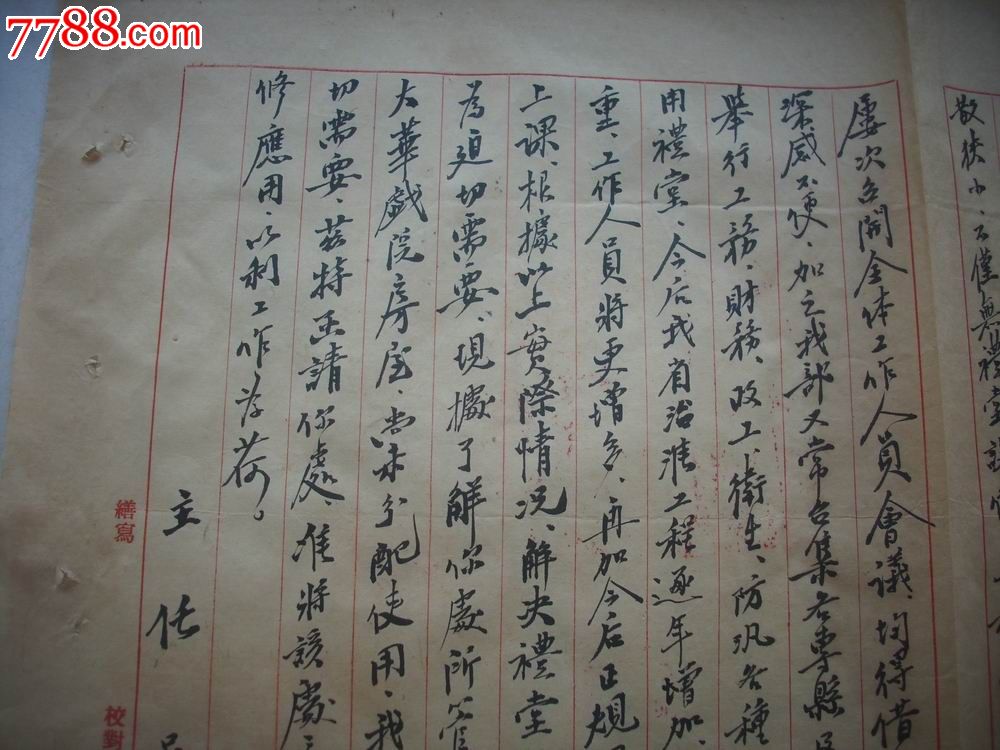 7788.com
散狹小、不僅無禮堂設
屢次召開全体工作人員會議、均得借
深感不便、加之我部又常召集各專縣
舉行工務、財務、政工、衛生、防汛各種
用禮堂、今后我省治淮工程逐年增加、
重、工作人員將更增多、再加今后正規
上课、根據以上實際情况、解决禮堂
為迫切需要、現據了解你處所管
大華戲院房屋、尚未分配使用、我
切需要、茲特函請你處、准將該處
修應用、以利工作为荷。
主任
繕寫
校對